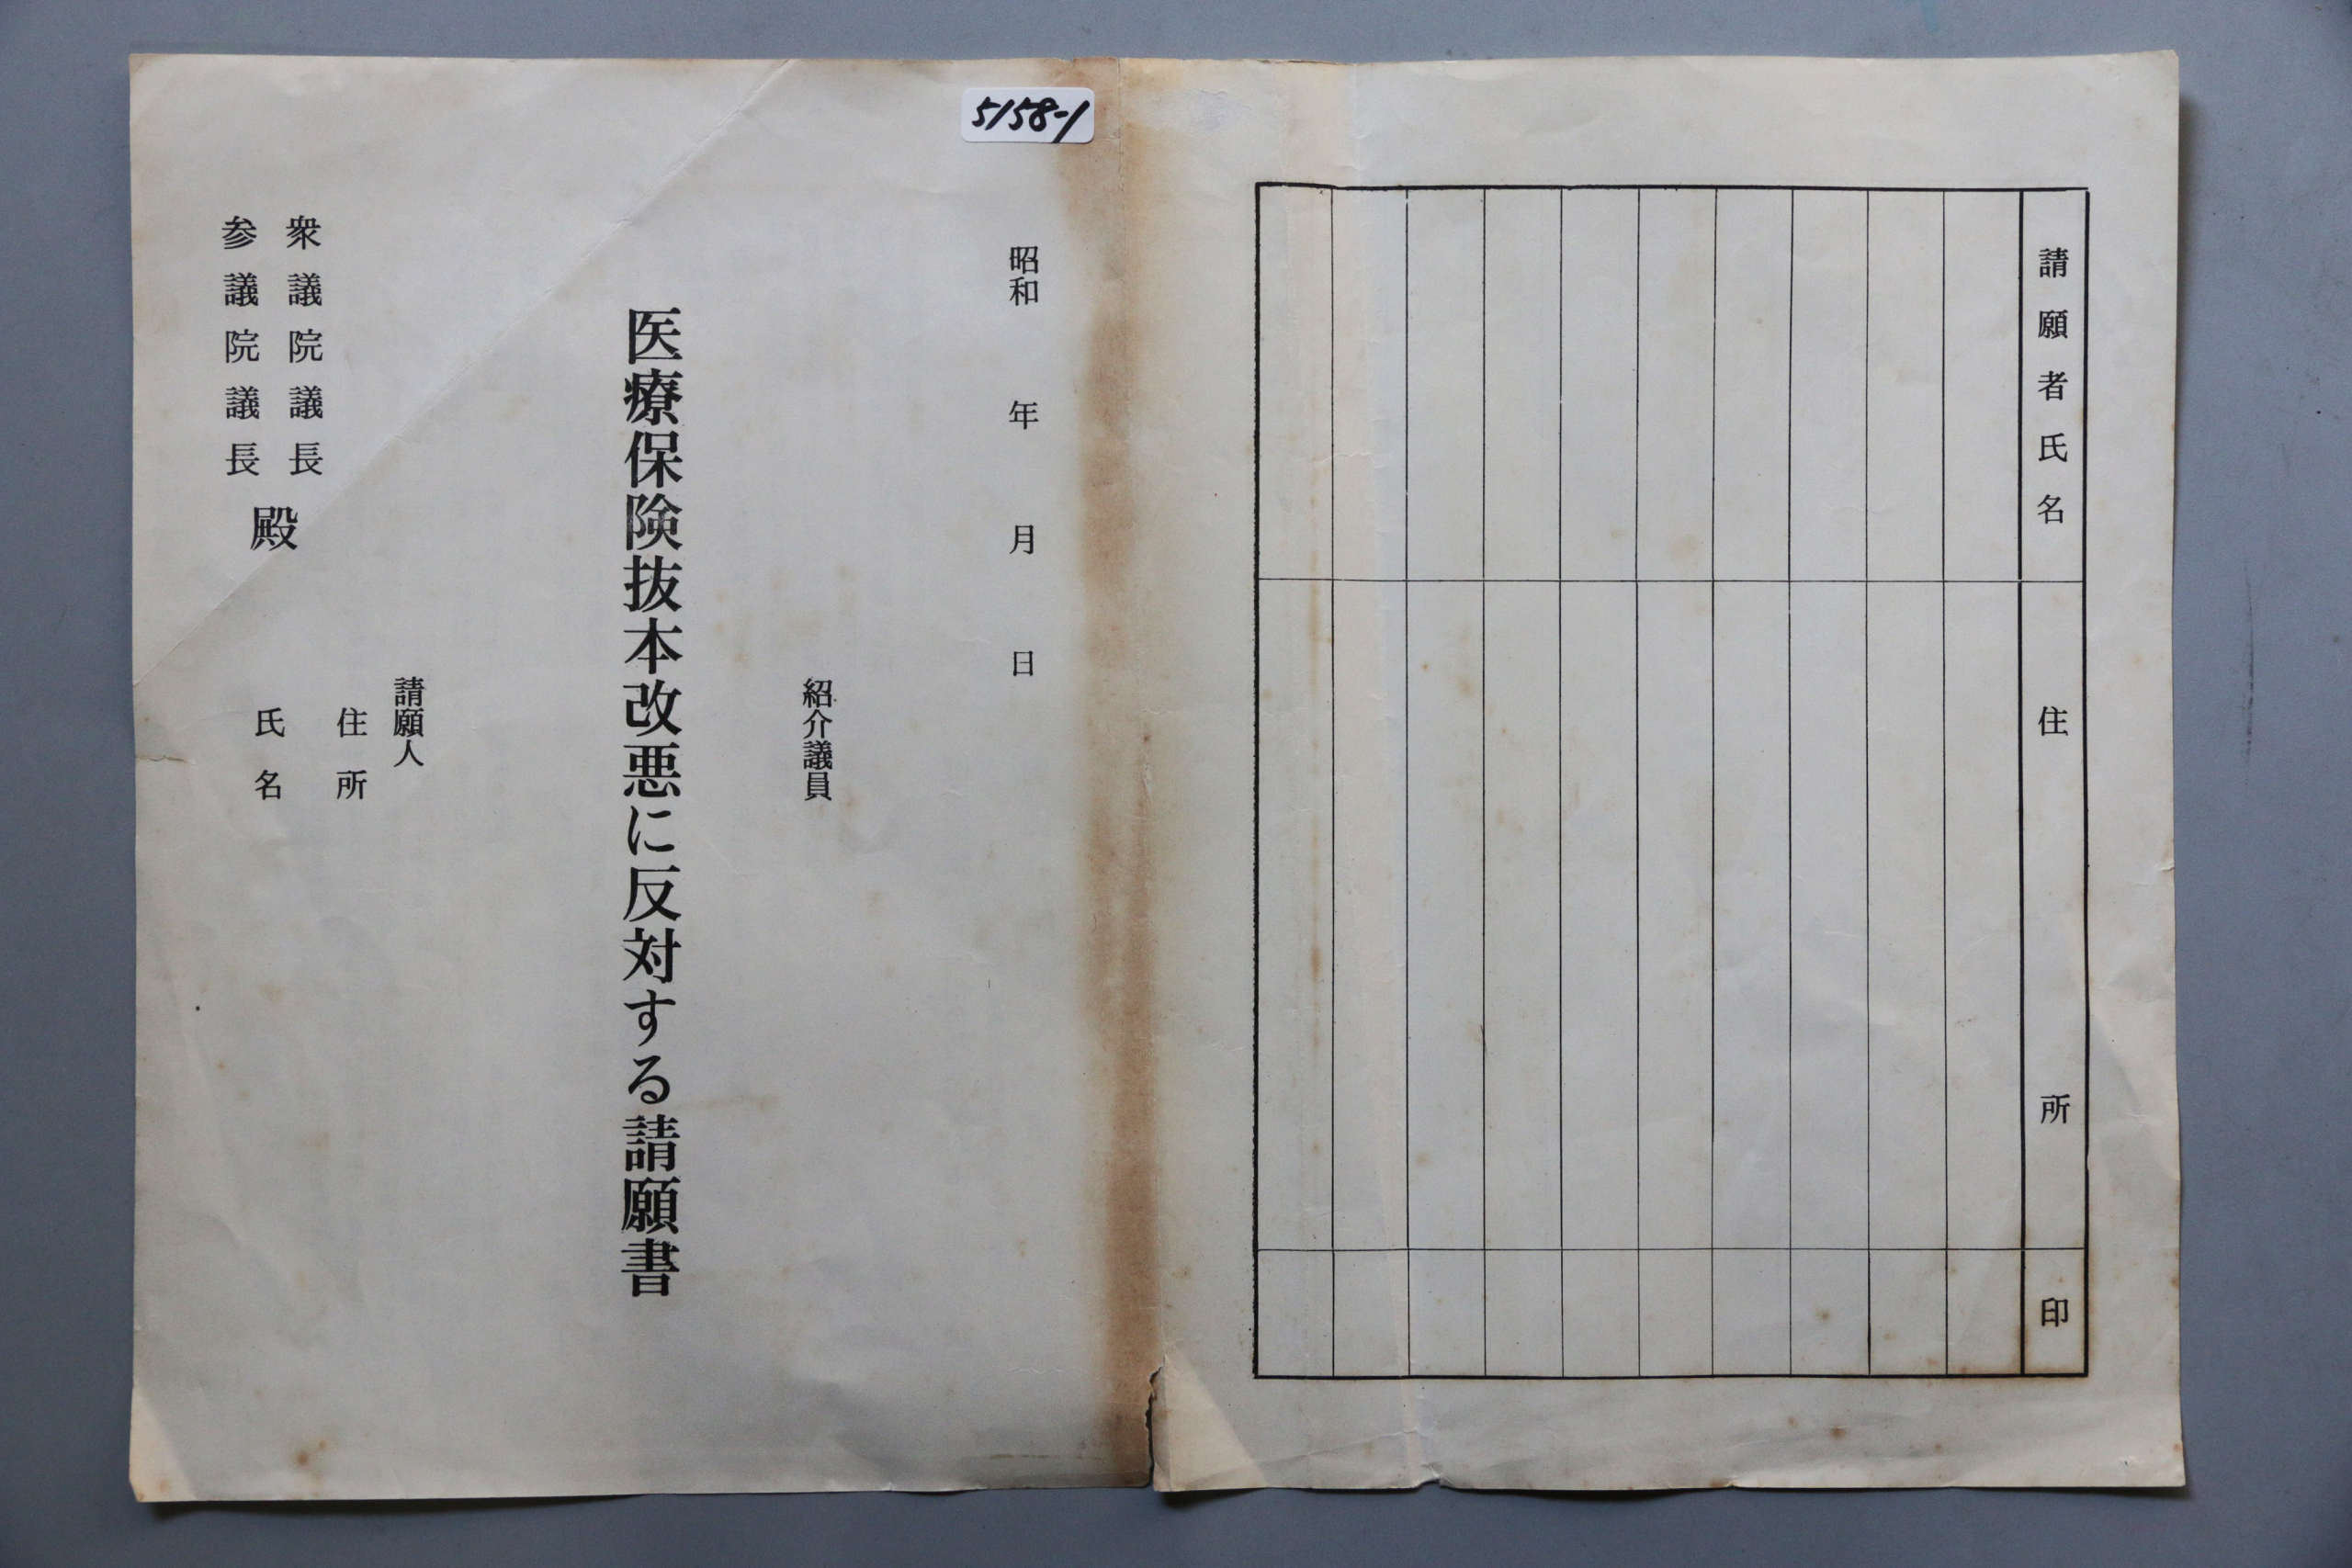 5158-1
請願者氏名 住所 印
昭和 年 月 日
紹介議員
医療保険抜本改悪に反対する請願書
請願人
住所
氏名
衆議院議長
参議院議長
殿